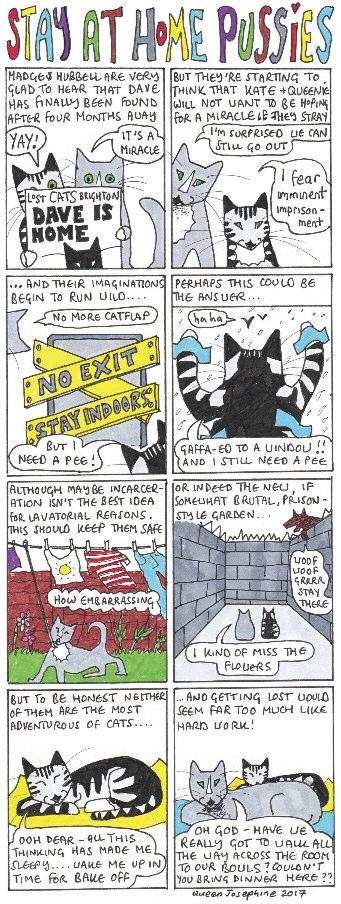 STAY AT HOME PUSSIES
MADGE & HUBBELL ARE VERY
GLAD TO HEAR THAT DAVE
HAS FINALLY BEEN FOUND
AFTER FOUR MONTHS AWAY
YAY!
IT'S A
MIRACLE
LOST CATS BRIGHTON
DAVE IS
HOME
BUT THEY'RE STARTING TO
THINK THAT KATE + QUEENIE
WILL NOT WANT TO BE HOPING
FOR A MIRACLE IF THEY STRAY
I'M SURPRISED WE CAN
STILL GO OUT
I fear
imminent
imprison-
ment
...AND THEIR IMAGINATIONS
BEGIN TO RUN WILD....
NO MORE CATFLAP
NO EXIT
STAY INDOORS
BUT I
NEED A PEE!
PERHAPS THIS COULD BE
THE ANSWER...
ha ha
GAFFA-ED TO A WINDOW!!
(AND I STILL NEED A PEE
ALTHOUGH MAYBE INCARCER-
ATION ISN'T THE BEST IDEA
FOR LAVATORIAL REASONS.
THIS SHOULD KEEP THEM SAFE
HOW EMBARRASSING
OR INDEED THE NEW, IF
SOMEWHAT BRUTAL, PRISON-
STYLE GARDEN...
WOOF
WOOF
GRRRR
STAY
THERE
I KIND OF MISS THE
FLOWERS
BUT TO BE HONEST NEITHER
OF THEM ARE THE MOST
ADVENTUROUS OF CATS....
OOH DEAR - ALL THIS
THINKING HAS MADE ME
SLEEPY.... WAKE ME UP IN
TIME FOR BAKE OFF
...AND GETTING LOST WOULD
SEEM FAR TOO MUCH LIKE
HARD WORK!
OH GOD - HAVE WE
REALLY GOT TO WALK ALL
THE WAY ACROSS THE ROOM
TO OUR BOWLS? COULDN'T
YOU BRING DINNER HERE??
Queen Josephine 2017